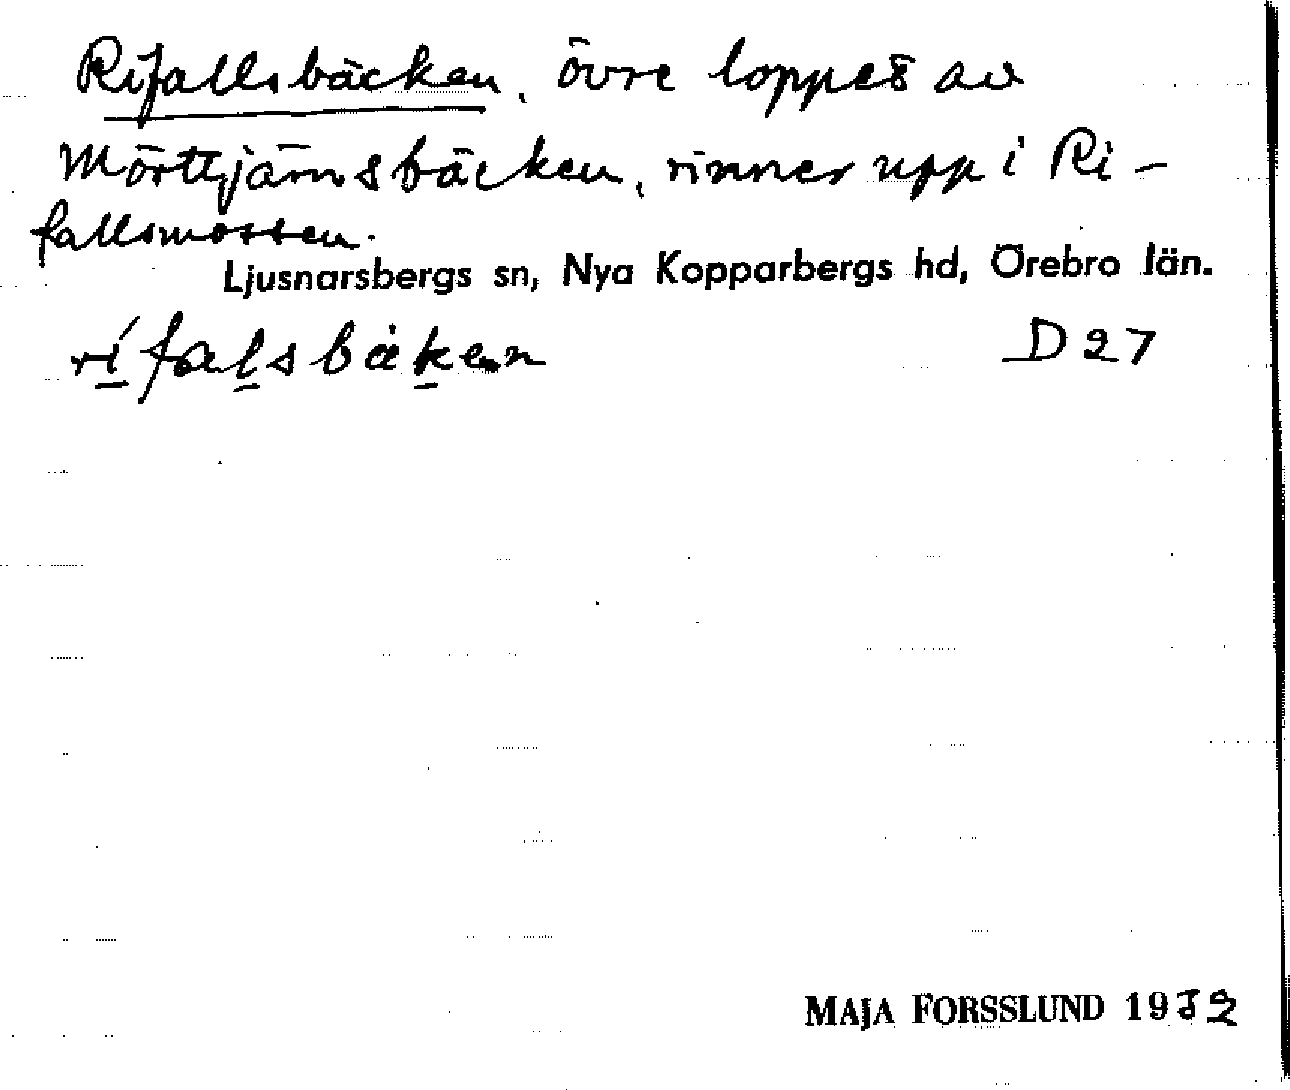 Rifallsbäcken, övre loppet av
Mörttjärnsbäcken, rinner upp i Ri-
fallsmossen.
Ljusnarsbergs sn, Nya Kopparbergs hd, Örebro län.
rifalsbäken
D 27
MAJA FORSSLUND 1932